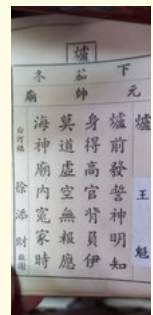 爐
下茄冬
元帥廟
爐 王魁
爐前發誓神明知
身得高官背員伊
莫道虛空無報應
海神廟內冤家時
白河鎮 徐添財 敬謝